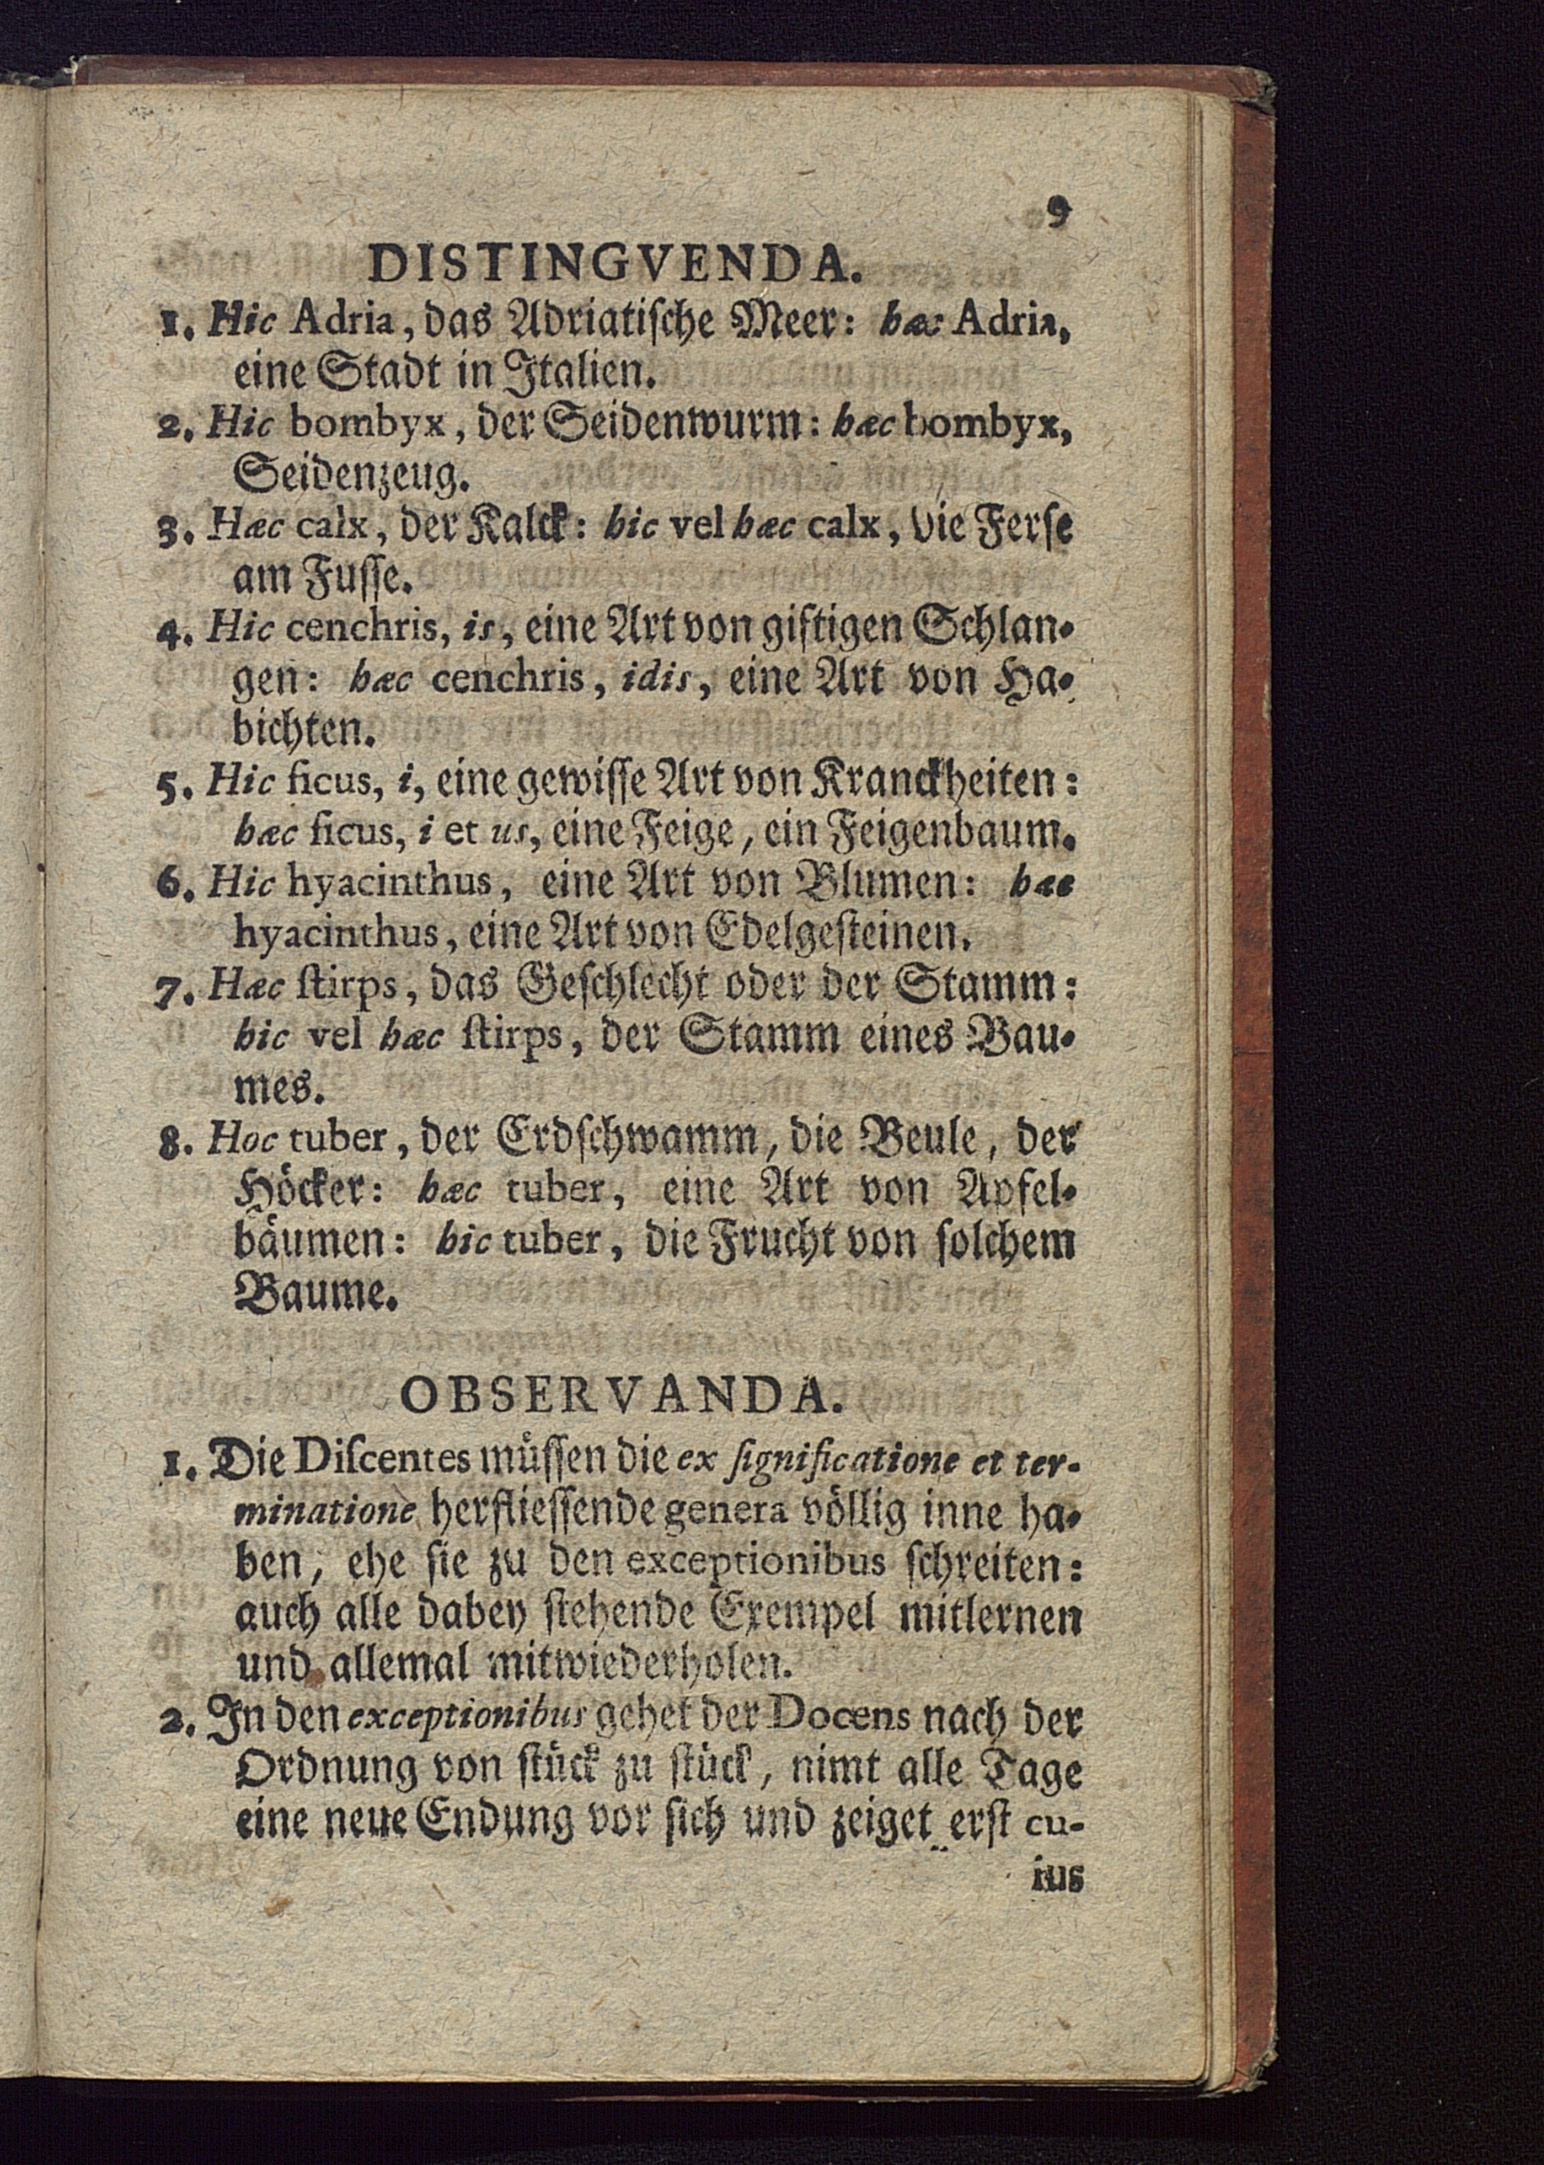 9
DISTINGVENDA.
1. Hic Adria, das Adriatiſche Meer: hæc Adria,
eine Stadt in Italien.
2. Hic bombyx, der Seidenwurm: hæc bombyx,
Seidenzeug.
3. Hæc calx, der Kalck: hic vel hæc calx, die Ferſe
am Fuſſe.
4. Hic cenchris, is, eine Art von giftigen Schlan-
gen: hæc cenchris, idis, eine Art von Ha-
bichten.
5. Hic ficus, i, eine gewiſſe Art von Kranckheiten:
hæc ficus, i et us, eine Feige, ein Feigenbaum.
6. Hic hyacinthus, eine Art von Blumen: hæc
hyacinthus, eine Art von Edelgeſteinen.
7. Hæc ſtirps, das Geſchlecht oder der Stamm:
hic vel hæc ſtirps, der Stamm eines Bau-
mes.
8. Hoc tuber, der Erdſchwamm, die Beule, der
Höcker: hæc tuber, eine Art von Apfel-
bäumen: hic tuber, die Frucht von ſolchem
Baume.
OBSERVANDA.
1. Die Diſcentes müſſen die ex ſignificatione et ter-
minatione herflieſſende genera völlig inne ha-
ben, ehe ſie zu den exceptionibus ſchreiten:
auch alle dabey ſtehende Exempel mitlernen
und allemal mitwiederholen.
2. In den exceptionibus gehet der Docens nach der
Ordnung von ſtück zu ſtück, nimt alle Tage
eine neue Endung vor ſich und zeiget erſt cu-
ius